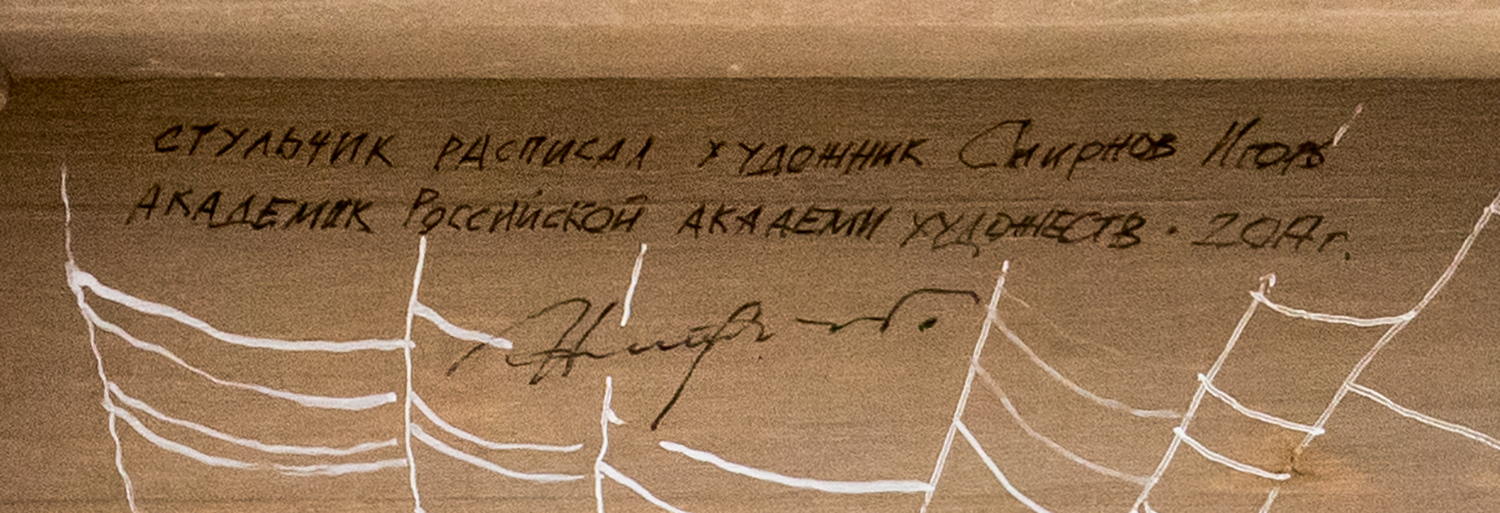 стульчик расписал художник Смирнов Игорь
академик Российской академи художеств.